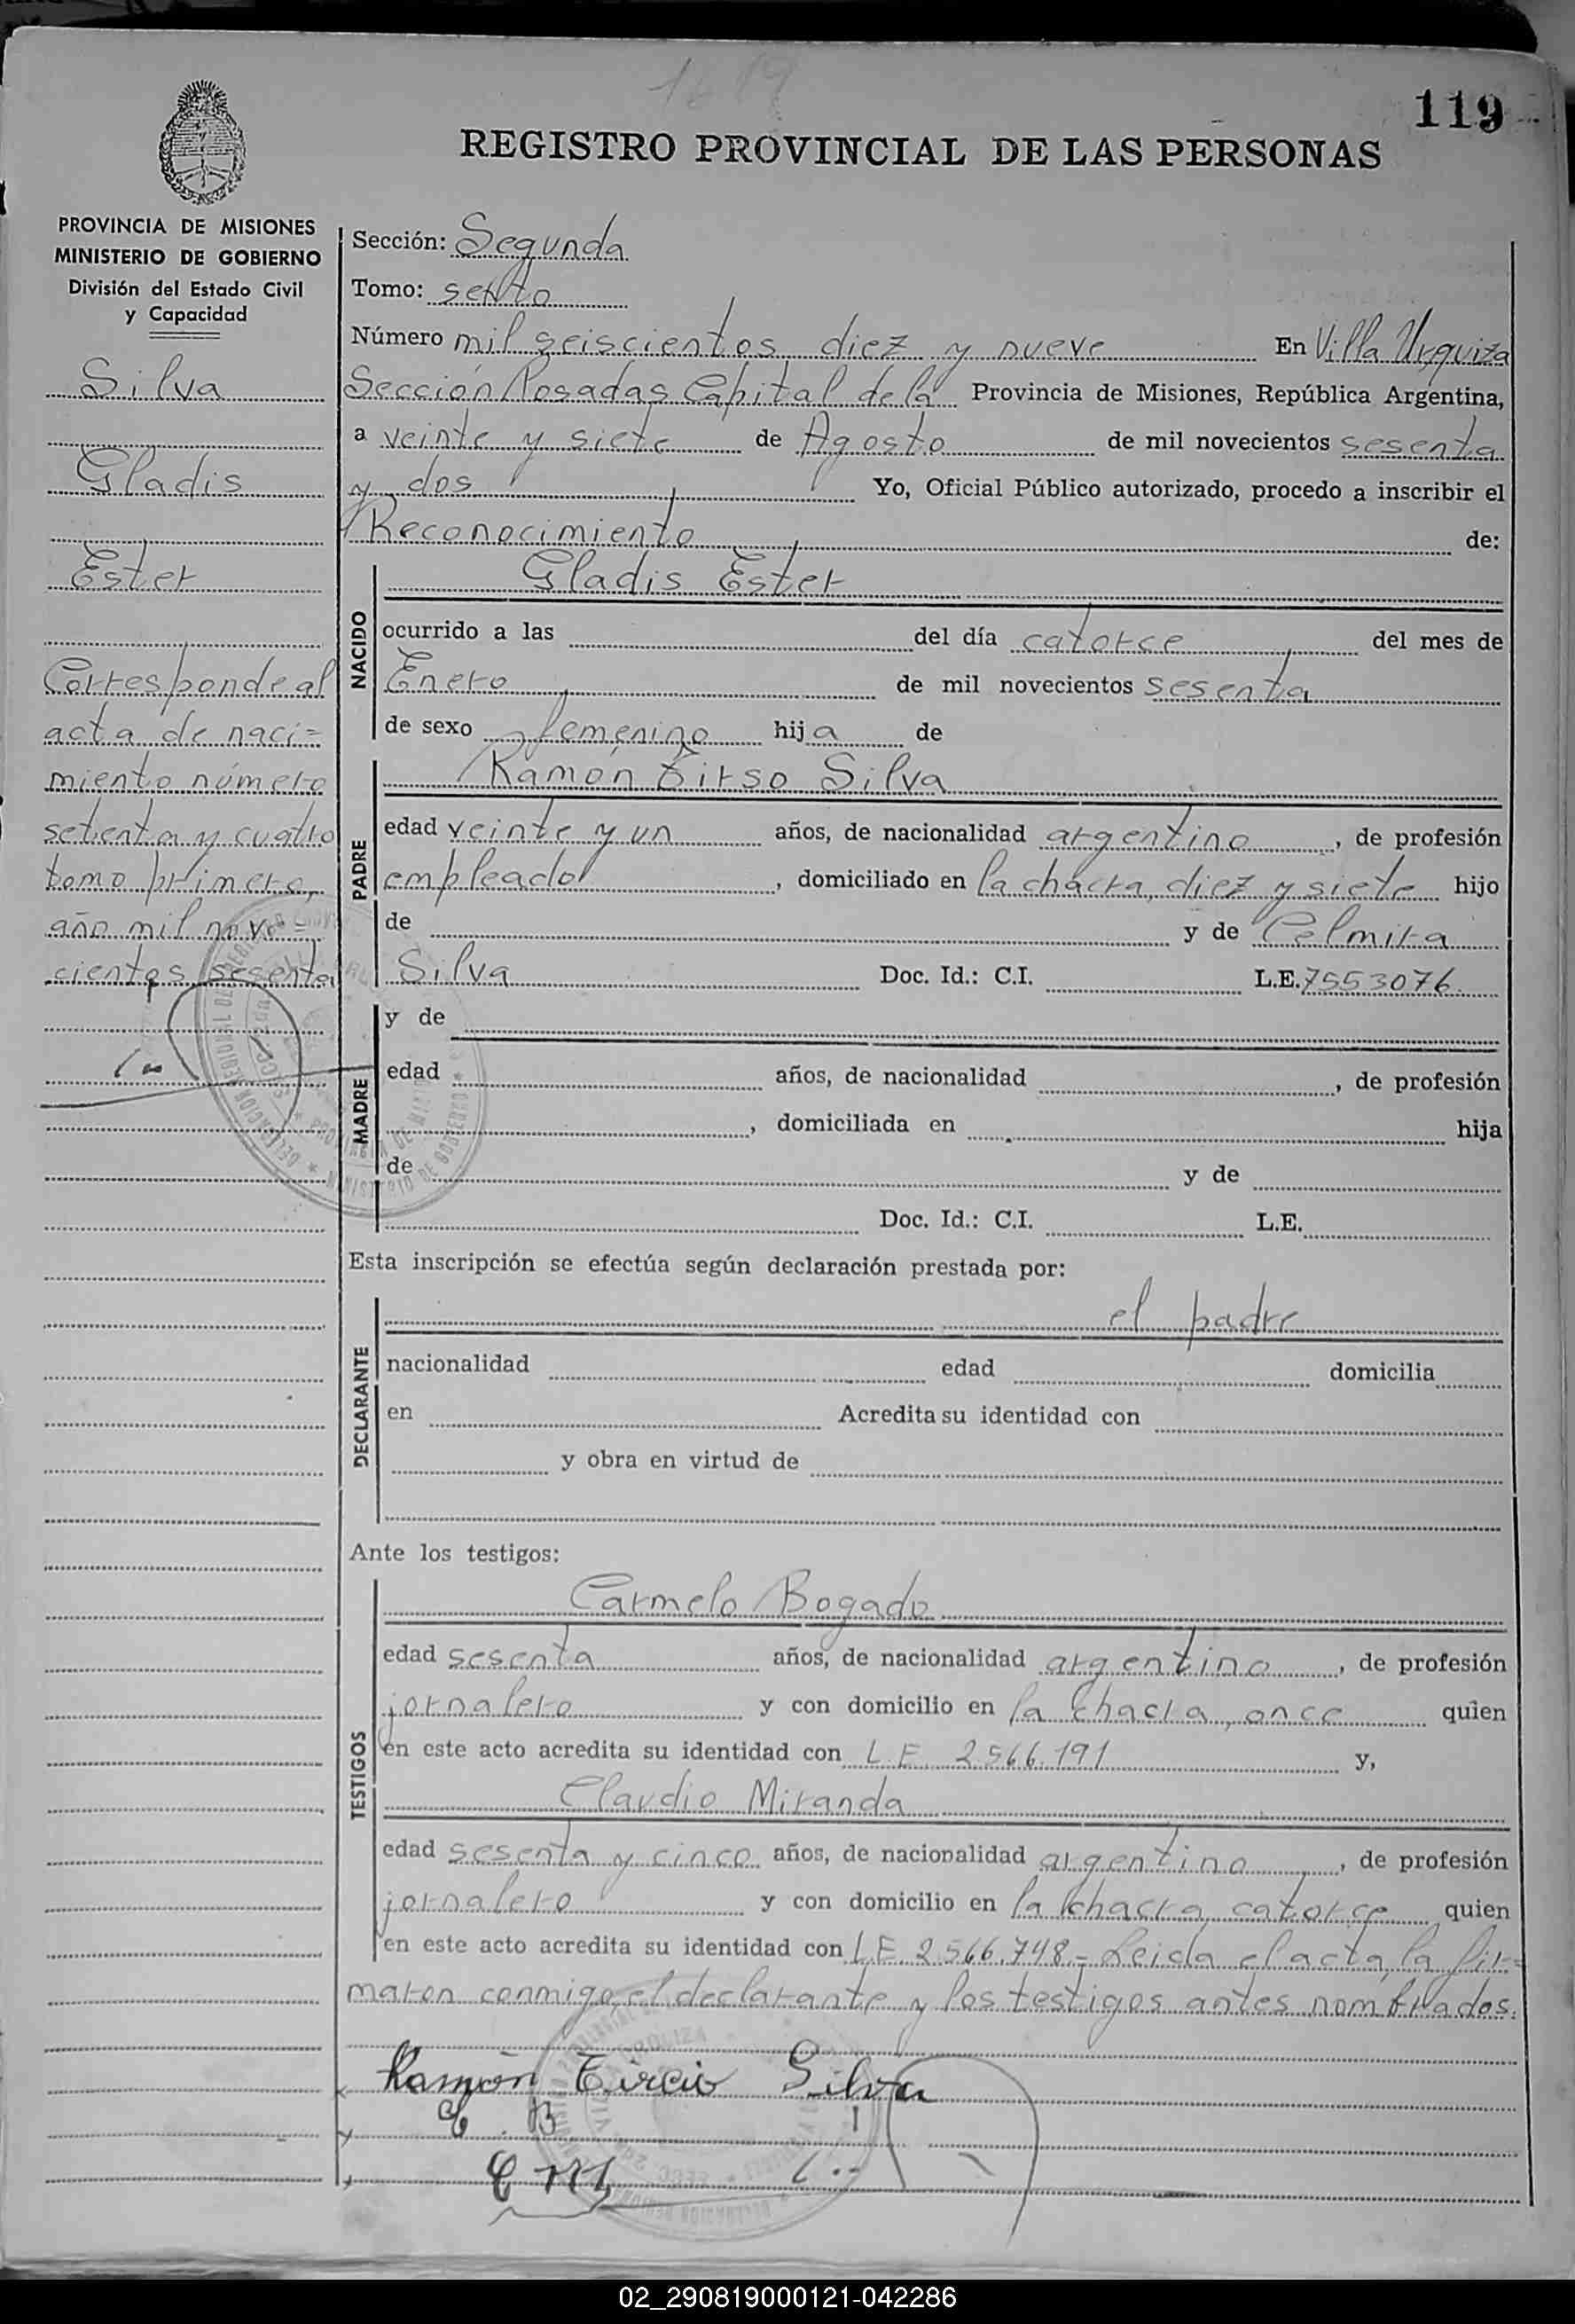 119
REGISTRO PROVINCIAL DE LAS PERSONAS
PROVINCIA DE MISIONES
MINISTERIO DE GOBIERNO
División del Estado Civil
y Capacidad
Silva
Gladis
Ester
Corresponde al
acta de naci=
miento número
setenta y cuatro
tomo primero,
año mil nove=
cientos sesenta
Sección: Segunda
Tomo: sexto
Número mil seiscientos diez y nueve En Villa Urquiza
Sección Posadas Capital de la Provincia de Misiones, República Argentina,
a veinte y siete de Agosto de mil novecientos sesenta
y dos Yo, Oficial Público autorizado, procedo a inscribir el
Reconocimiento de:
NACIDO
Gladis Ester
ocurrido a las del día catorce del mes de
Enero de mil novecientos sesenta
de sexo femenino hija de
PADRE
Ramón Tirso Silva
edad veinte y un años, de nacionalidad argentino, de profesión
empleado, domiciliado en la chacra diez y siete hijo
de y de Celmira
Silva Doc. Id.: C.I. L.E. 7553076
MADRE
y de
edad años, de nacionalidad , de profesión
, domiciliada en hija
de y de
Doc. Id.: C.I. L.E.
Esta inscripción se efectúa según declaración prestada por:
DECLARANTE
el padre
nacionalidad edad domicilia
en Acredita su identidad con
y obra en virtud de
Ante los testigos:
TESTIGOS
Carmelo Bogado
edad sesenta años, de nacionalidad argentino, de profesión
jornalero y con domicilio en la chacra, once quien
en este acto acredita su identidad con L E 2.566.191 y,
Claudio Miranda
edad sesenta y cinco años, de nacionalidad argentino, de profesión
jornalero y con domicilio en la chacra catorce quien
en este acto acredita su identidad con L E 2.566.748.- Leida el acta, la fir=
maron conmigo, el declarante y los testigos antes nombrados.
Ramón Tircio Silva
C. B
C M
02_290819000121-042286